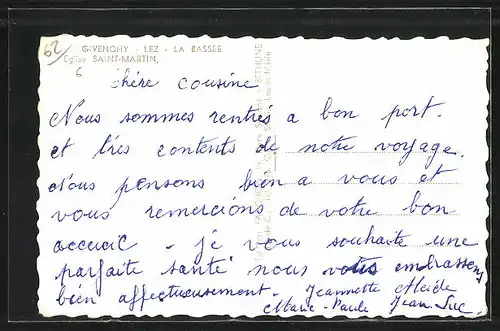 62/
6
GIVENCHY - LEZ - LA BASSÉE
Eglise SAINT-MARTIN,
chère cousine
Nous sommes rentrés a bon port.
et très contents de notre voyage.
Nous pensons bien a vous et
vous remercions de votre bon
accueil - je vous souhaite une
parfaite santé nous vous embrassons
bien affectueusement - Jeannette Alcide
Marie-Paule Jean Luc.
BETHUNE